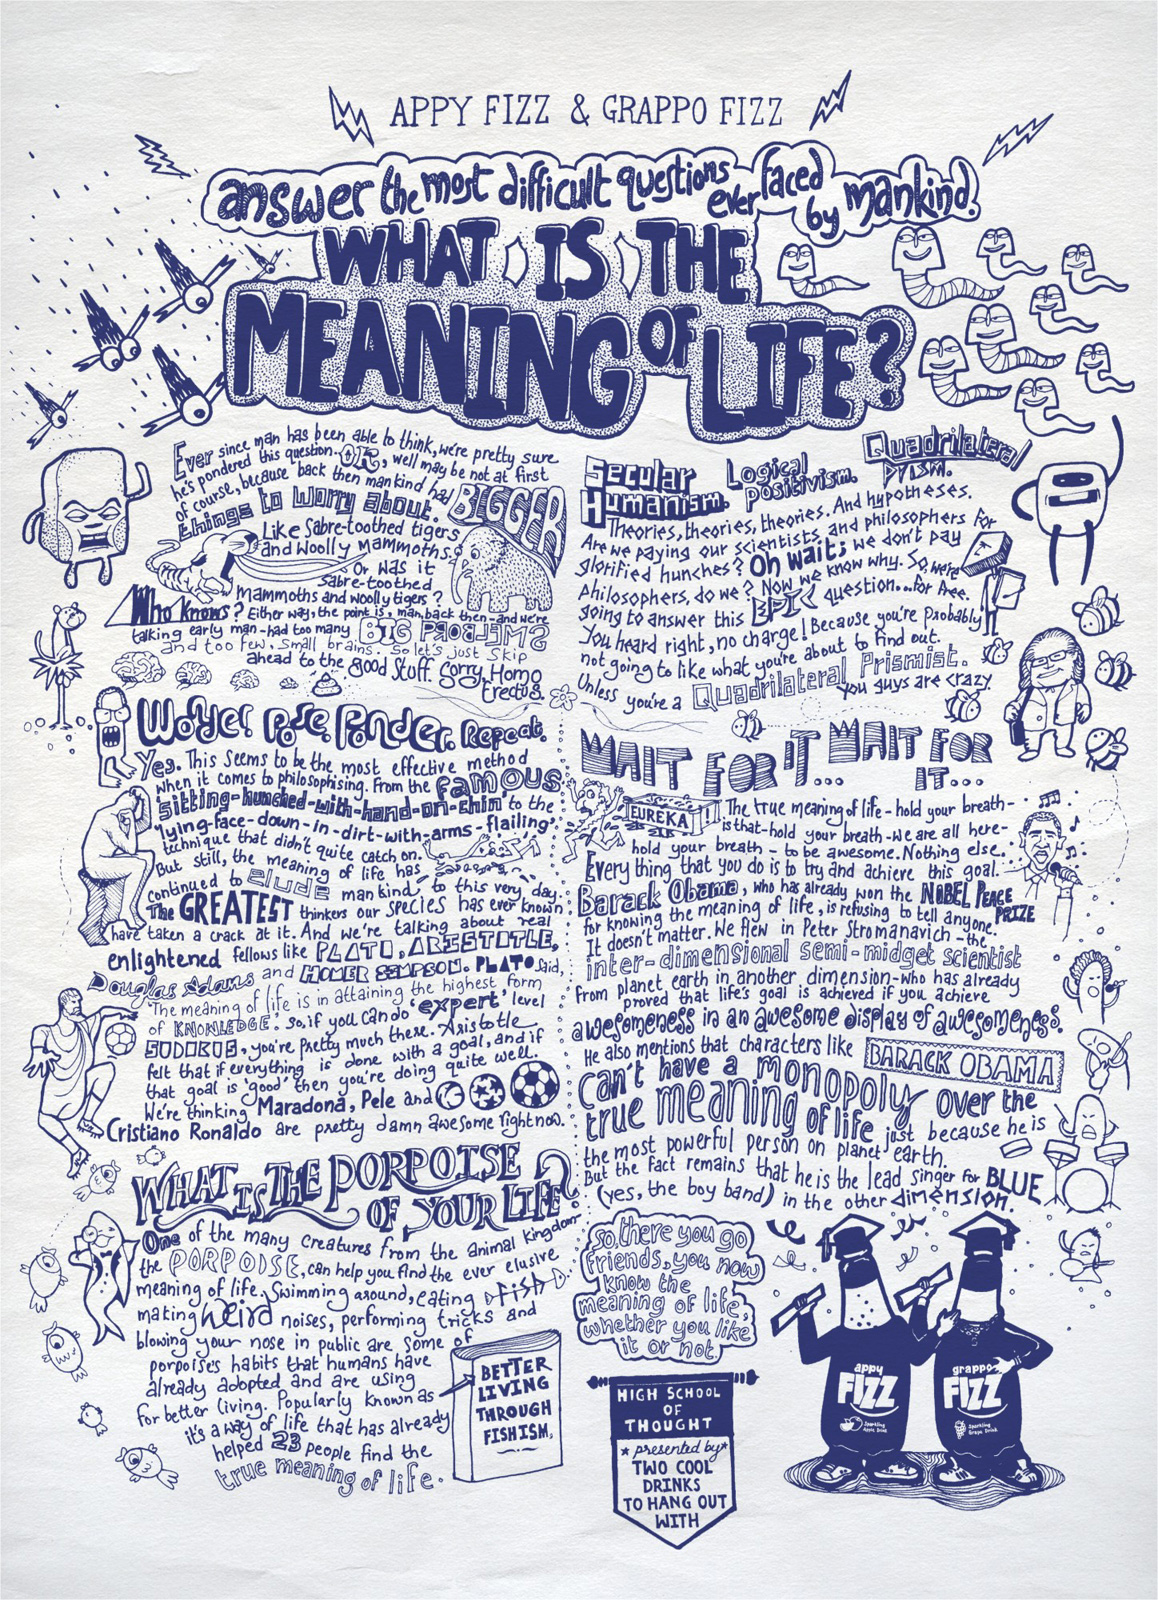 APPY FIZZ & GRAPPO FIZZ
answer the most difficult questions ever faced by mankind.
WHAT IS THE
MEANING OF LIFE?
Ever since man has been able to think, we're pretty sure
he's pondered this question. OK, well may be not at first
of course, because back then mankind had BIGGER
things to worry about.
Like Sabre-toothed tigers
and Woolly Mammoths.
Or was it
Sabre-toothed
Mammoths and woolly tigers?
Who knows? Either way, the point is, man back then-and we're
talking early man-had too many BIG PROBLEMS
and too few. Small brains. So let's just skip
ahead to the good stuff. Sorry, Homo
Erectus.
Wonder. Pose. Ponder. Repeat.
Yes. This seems to be the most effective method
when it comes to philosophising. From the famous
'sitting-hunched-with-hand-on-chin' to the
'lying-face-down-in-dirt-with-arms-flailing'
technique that didn't quite catch on.
But still, the meaning of life has
continued to elude mankind to this very day.
The GREATEST thinkers our species has ever known
have taken a crack at it. And we're talking about real
enlightened fellows like PLATO, ARISTOTLE,
Douglas Adams and HOMER SIMPSON. PLATO said,
'The meaning of life is in attaining the highest form
of KNOWLEDGE'. So, if you can do 'expert' level
SUDOKUS, you're pretty much there. Aristotle
felt that if everything is done with a goal, and if
that goal is 'good' then you're doing quite well.
We're thinking Maradona, Pele and
Cristiano Ronaldo are pretty damn awesome right now.
WHAT IS THE PORPOISE
OF YOUR LIFE?
One of the many creatures from the animal kingdom-
the PORPOISE, can help you find the ever elusive
meaning of life. Swimming around, eating FISH
making weird noises, performing tricks and
blowing your nose in public are some of
porpoise's habits that humans have
already adopted and are using
for better living. Popularly known as
it's a way of life that has already
helped 23 people find the
true meaning of life.
BETTER
LIVING
THROUGH
FISHISM.
Secular
Humanism. Logical
positivism. Quadrilateral
Prism.
Theories, theories, theories. And hypotheses.
Are we paying our scientists and philosophers for
glorified hunches? Oh wait; we don't pay
philosophers, do we? Now we know why. So, we're
going to answer this EPIC question...for free.
You heard right, no charge! Because you're probably
not going to like what you're about to find out.
Unless you're a Quadrilateral Prismist.
You guys are crazy.
WAIT FOR IT... WAIT FOR
IT...
EUREKA!
The true meaning of life - hold your breath-
is that-hold your breath-we are all here-
hold your breath - to be awesome. Nothing else.
Every thing that you do is to try and achieve this goal.
Barack Obama, who has already won the NOBEL PEACE
PRIZE
for knowing the meaning of life, is refusing to tell anyone.
It doesn't matter. We flew in Peter Stromanavich - the
inter-dimensional semi-midget scientist
from planet earth in another dimension-who has already
proved that life's goal is achieved if you achieve
awesomeness in an awesome display of awesomeness.
He also mentions that characters like BARACK OBAMA
can't have a monopoly over the
true meaning of life just because he is
the most powerful person on planet earth.
But the fact remains that he is the lead singer for BLUE
(yes, the boy band) in the other dimension.
So, there you go
friends, you now
know the
meaning of life,
whether you like
it or not.
HIGH SCHOOL
OF
THOUGHT
presented by
TWO COOL
DRINKS
TO HANG OUT
WITH
appy
FIZZ
Sparkling
Apple Drink
grappo
FIZZ
Sparkling
Grape Drink